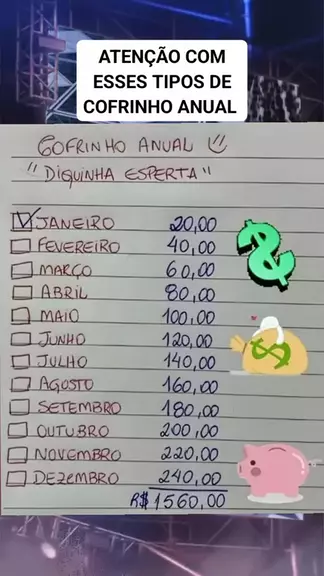 ATENÇÃO COM
ESSES TIPOS DE
COFRINHO ANUAL
COFRINHO ANUAL
"DIQUINHA ESPERTA"
JANEIRO 20,00
FEVEREIRO 40,00
MARÇO 60,00
ABRIL 80,00
MAIO 100,00
JUNHO 120,00
JULHO 140,00
AGOSTO 160,00
SETEMBRO 180,00
OUTUBRO 200,00
NOVEMBRO 220,00
DEZEMBRO 240,00
R$ 1560,00